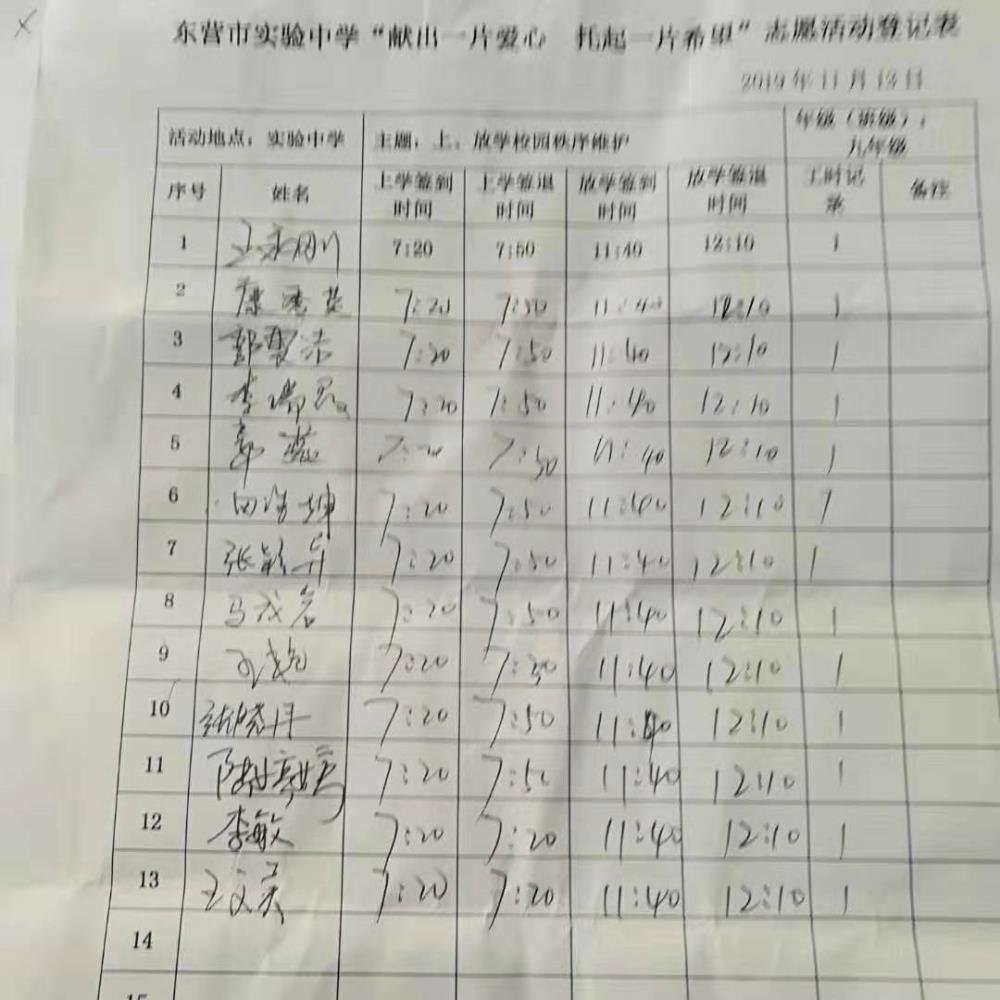 东营市实验中学“献出一片爱心 托起一片希望”志愿活动登记表
2019年11月13日
活动地点：实验中学 主题：上、放学校园秩序维护 年级（班级）：九年级
序号 姓名 上学签到时间 上学签退时间 放学签到时间 放学签退时间 工时记录 备注
1 王永刚 7:20 7:50 11:40 12:10 1
2 7:20 7:50 11:40 12:10 1
3 7:20 7:50 11:40 12:10 1
4 7:20 7:50 11:40 12:10 1
5 郭蕊 7:20 7:50 11:40 12:10 1
6 田浩坤 7:20 7:50 11:40 12:10 1
7 7:20 7:50 11:40 12:10 1
8 马成岩 7:20 7:50 11:40 12:10 1
9 7:20 7:30 11:40 12:10 1
10 7:20 7:50 11:40 12:10 1
11 7:20 7:50 11:40 12:10 1
12 李敏 7:20 7:20 11:40 12:10 1
13 王文景 7:20 7:20 11:40 12:10 1
14